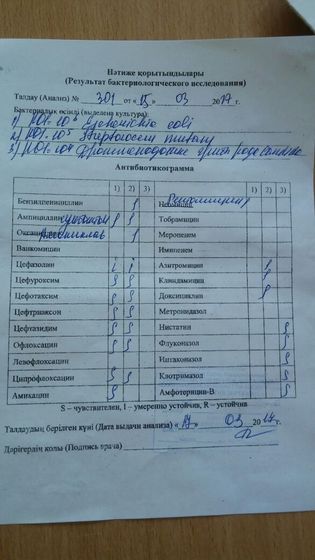 Нәтиже қорытындылары
(Результат бактериологического исследования)
Талдау (Анализ) № 301 от «15» 03 2017 г.
Бактериальды өсінді (выделена культура):
1) Escherichia coli
2)
3) дрожжеподобные грибы рода Candida
Антибиотикограмма
1) 2) 3) 1) 2) 3)
Бензилпенициллин
Ампициллин S S Тобрамицин
Оксациллин S Меропенем
Ванкомицин Имипенем
Цефазолин i i Азитромицин
Цефуроксим S S Клиндамицин
Цефотаксим S S Доксициклин S
Цефтриаксон S S Метронидазол
Цефтазидим S S Нистатин S
Офлоксацин S S Флуконазол S
Левофлоксацин Итраконазол S
Ципрофлоксацин S S Клотримазол S
Амикацин S Амфотерицин-В S
S – чувствителен, I – умеренно устойчив, R – устойчив
Талдаудың берілген күні (Дата выдачи анализа) «17» 03 2017 г.
Дәрігердің қолы (Подпись врача)